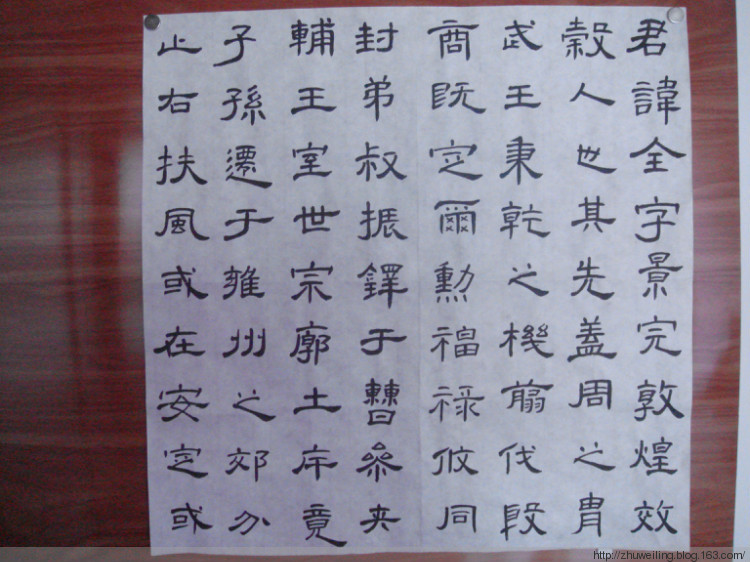 君諱全字景完敦煌效
穀人也其先蓋周之胄
武王秉乾之機翦伐殷
商既定爾勳福祿攸同
封弟叔振鐸于曹參夾
輔王室世宗廓土斥竟
子孫遷于雍州之郊分
止右扶風或在安定或
http://zhuweiling.blog.163.com/